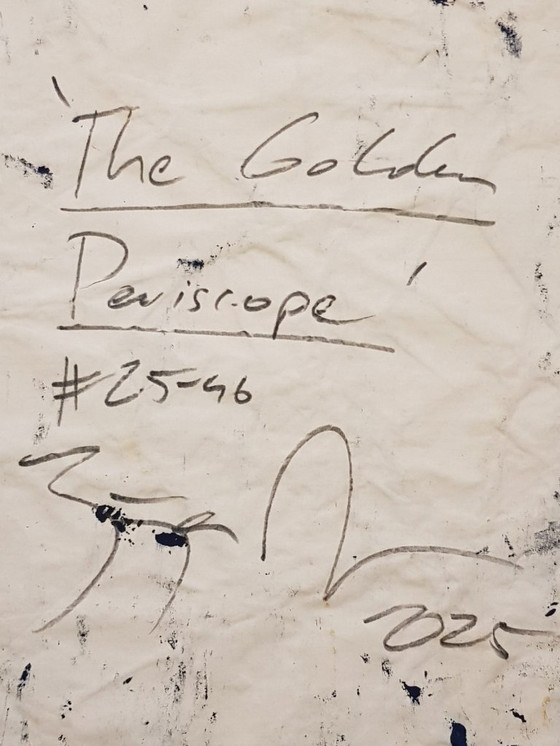 'The Golden
Periscope'
#25-46
2025